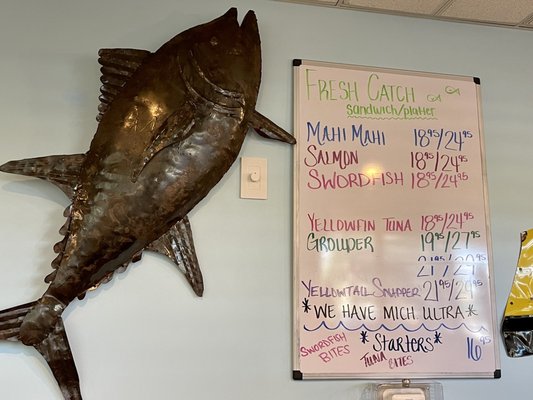 Fresh Catch
sandwich/platter
Mahi Mahi 18⁹⁵/24⁹⁵
Salmon 18⁹⁵/24⁹⁵
Swordfish 18⁹⁵/24⁹⁵
Yellowfin Tuna 18⁹⁵/24⁹⁵
Grouper 19⁹⁵/27⁹⁵
21⁹⁵/29⁹⁵
Yellowtail Snapper 21⁹⁵/29⁹⁵
*We have Mich Ultra*
*Starters*
Swordfish Bites
Tuna Bites
16